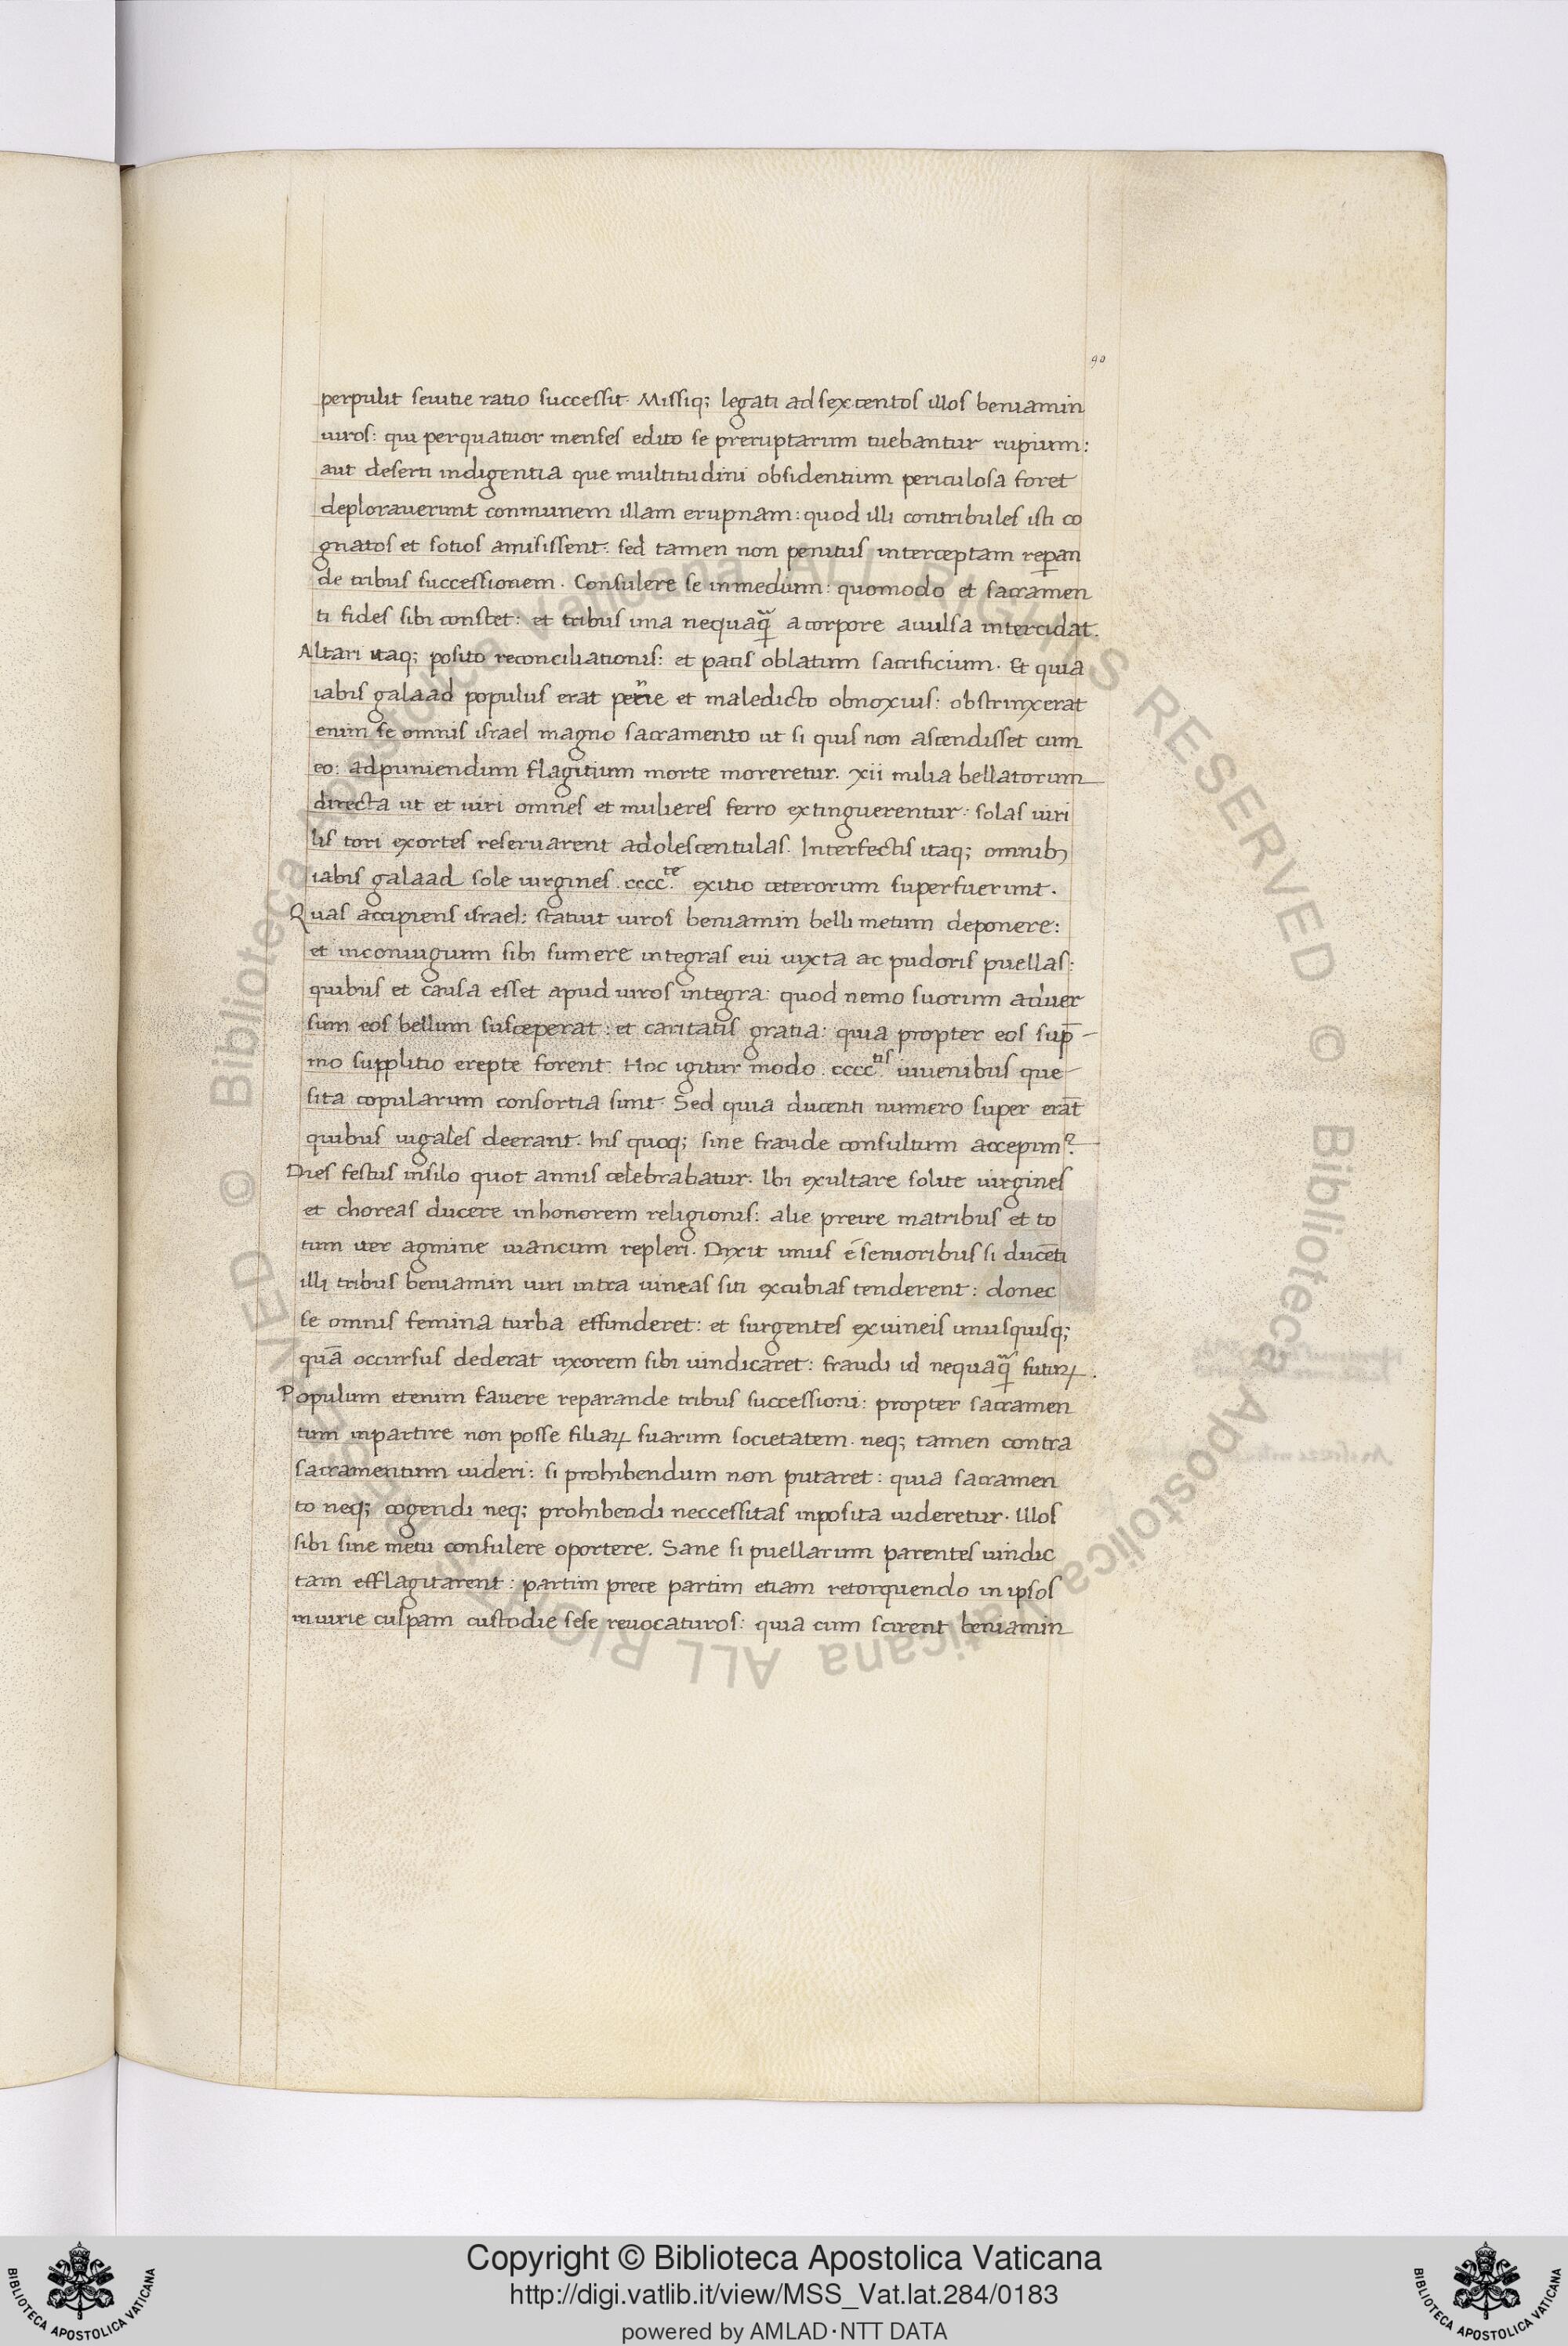 90
perpulit seuitie ratio successit. Missiq; legati ad sexcentos illos beniamin
uiros: qui per quatuor menses edito se preruptarum tuebantur rupium:
aut deserti indigentia que multitudini obsidentium periculosa foret
deplorauerunt communem illam erupnam: quod illi contribules isti co
gnatos et sotios amisissent. sed tamen non penitus interceptam reparan
de tribus successionem. Consulere se in medium: quomodo et sacramen
ti fides sibi constet: et tribus una nequaqͣ̃ a corpore auulsa intercidat.
Altari itaq; posito reconciliationis: et pacis oblatum sacrificium. Et quia
iabis galaad populus erat et maledicto obnoxius: obstrinxerat
enim se omnis israel magno sacramento ut si quis non ascendisset cum
eo: ad puniendum flagitium morte moreretur. xii milia bellatorum
directa ut et uiri omnes et mulieres ferro extinguerentur: solas uiri
lis tori exortes reseruarent adolescentulas. Interfectis itaq; omnibꝫ
iabis galaad sole uirgines .cccc.te exitio ceterorum superfuerunt.
Quas accipiens israel: statuit uiros beniamin belli metum deponere:
et in coniugium sibi sumere integras eui iuxta ac pudoris puellas:
quibus et causa esset apud uiros integra: quod nemo suorum aduer
sum eos bellum susceperat: et caritatis gratia: quia propter eos sup̄
mo supplitio erepte forent. Hoc igitur modo .cccc.tis iuuenibus que
sita copularum consortia sunt. Sed quia ducenti numero super erāt
quibus iugales deerant. his quoq; sine fraude consultum accepimꝰ.
Dies festus in silo quot annis celebrabatur. Ibi exultare solite uirgines
et choreas ducere in honorem religionis: alie preire matribus et to
tum iter agmine uiancum repleri. Dixit unus ē senioribus si ducēti
illi tribus beniamin uiri intra uineas siti excubias tenderent: donec
se omnis femina turba effunderet: et surgentes ex uineis unusquisq;
quā occursus dederat uxorem sibi uindicaret: fraudi id nequaqͣ̃ futuꝝ.
Populum etenim fauere reparande tribus successioni: propter sacramen
tum inpartire non posse filiaꝝ suarum societatem. neq; tamen contra
sacramentum uideri: si prohibendum non putaret: quia sacramen
to neq; cogendi neq; prohibendi neccessitas inposita uideretur. Illos
sibi sine metu consulere oportere. Sane si puellarum parentes uindic
tam efflagitarent: partim prece partim etiam retorquendo in ipsos
in uirie culpam custodie sese reuocaturos: quia cum scirent beniamin
© Biblioteca Apostolica Vaticana ALL RIGHTS RESERVED © Biblioteca Apostolica Vaticana ALL RIGHTS RESERVED
BIBLIOTECA APOSTOLICA VATICANA
Copyright © Biblioteca Apostolica Vaticana
http://digi.vatlib.it/view/MSS_Vat.lat.284/0183
powered by AMLAD·NTT DATA
BIBLIOTECA APOSTOLICA VATICANA